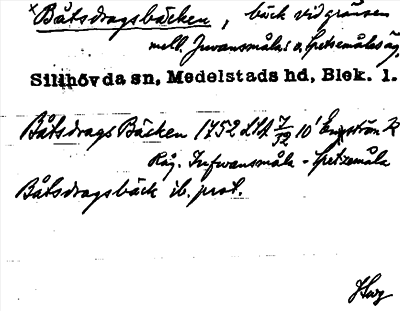 ×Båtsdragsbäcken, bäck vid gränsen
mell. Juvansmåla o. Spetsamåla äg.
Sillhövda sn, Medelstads hd, Blek. l.
BåtsdragsBäcken 1752 LSA 7/52 10¹ Engström R
Råg. Infwansmåla - Spetzamåla
Båtsdragsbäck ib. prot.